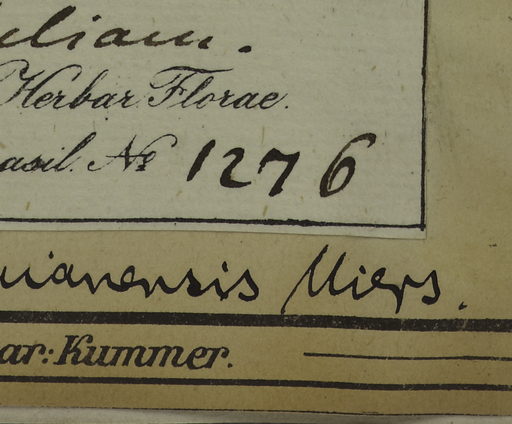 Herbar. Florae.
asil. Nº 1276
uianensis Miers.
ar: Kummer.